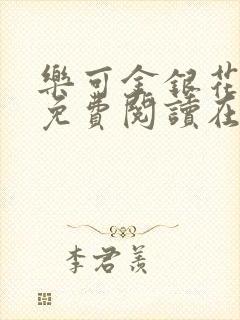 樂可金銀花
免費閱讀在
李君羨